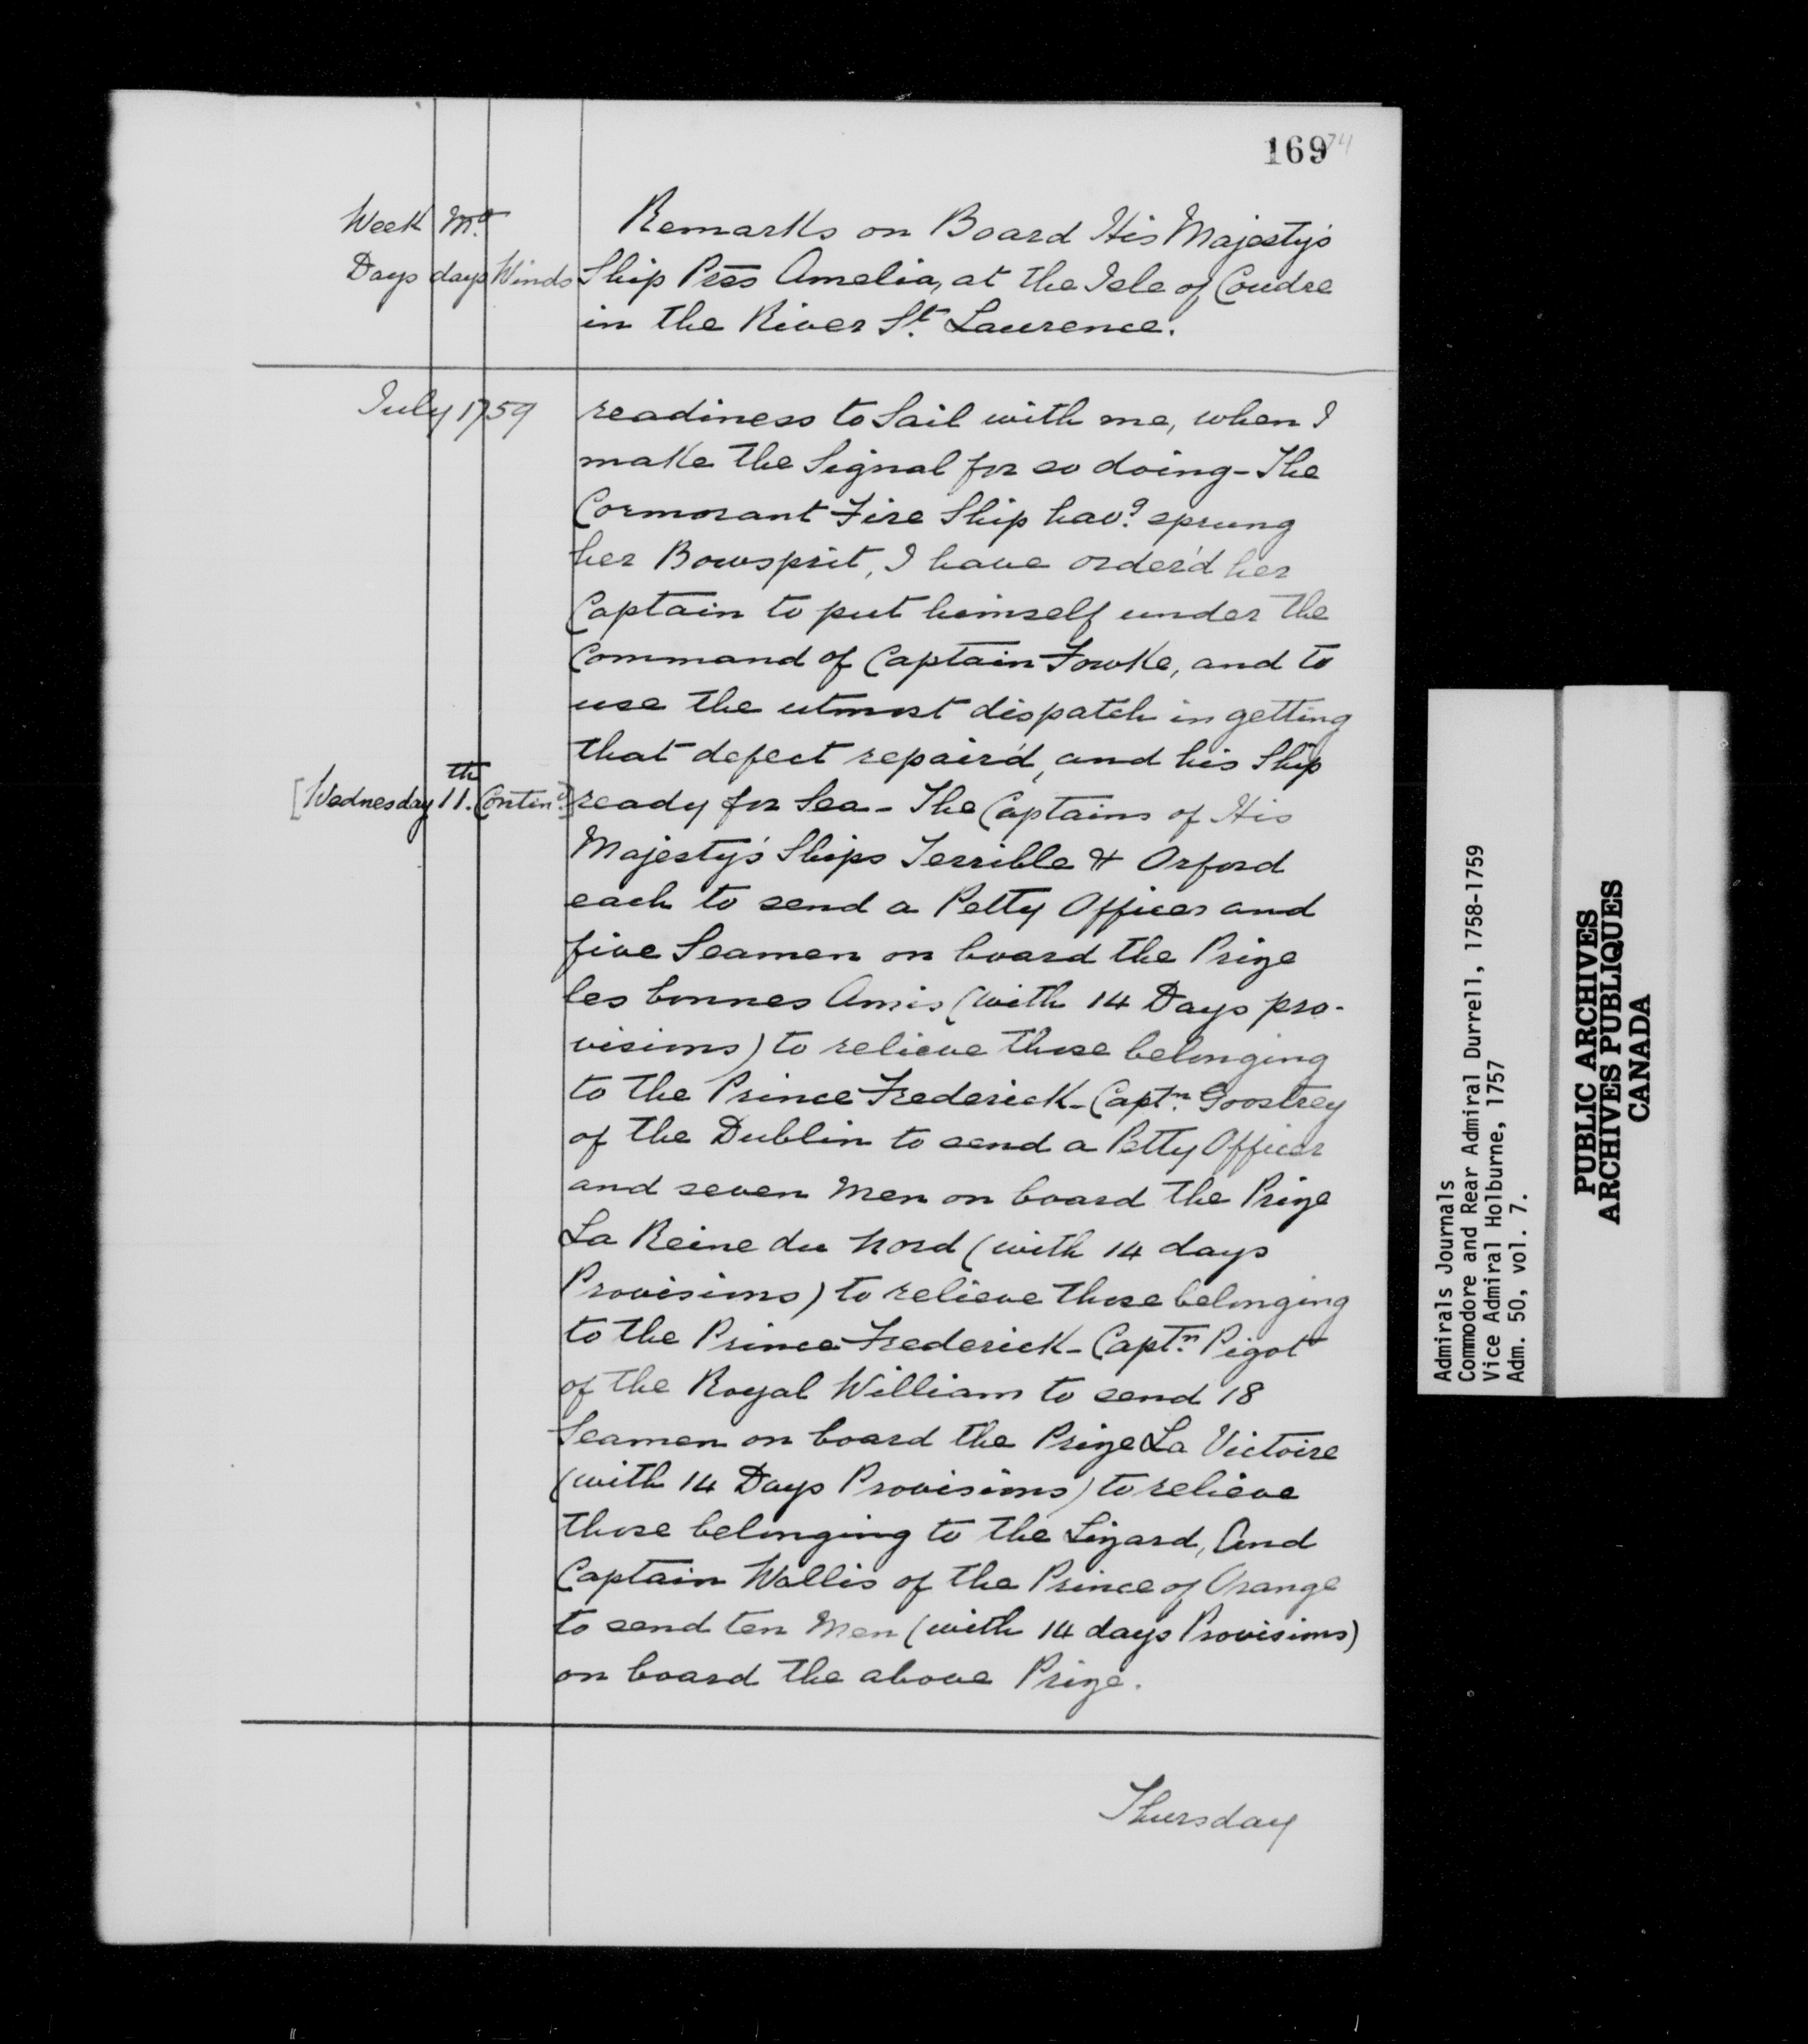 169
74
Week Mo.
Days days Winds
Remarks on Board His Majesty's
Ship Prss Amelia, at the Isle of Coudre
in the River St. Laurence.
July 1759
readiness to Sail with me, when I
make the Signal for so doing - The
Cormorant Fire Ship havg. sprung
her Bowsprit, I have order'd her
Captain to put himself under the
Command of Captain Fowke, and to
use the utmost dispatch in getting
that defect repair'd, and his Ship
[Wednesday 11.th Contind.]
ready for Sea - The Captains of His
Majesty's Ships Terrible & Orford
each to send a Petty Officer and
five Seamen on board the Prize
les bonnes Amis (with 14 Days pro-
visions) to relieve those belonging
to the Prince Frederick - Captn. Goostrey
of the Dublin to send a Petty Officer
and seven Men on board the Prize
La Reine du Nord (with 14 days
Provisions) to relieve those belonging
to the Prince Frederick - Captn. Pigot
of the Royal William to send 18
Seamen on board the Prize La Victoire
(with 14 Days Provisions) to relieve
those belonging to the Lizard, And
Captain Wallis of the Prince of Orange
to send ten Men (with 14 days Provisions)
on board the above Prize.
Thursday
Admirals Journals
Commodore and Rear Admiral Durrell, 1758-1759
Vice Admiral Holburne, 1757
Adm. 50, vol. 7.
PUBLIC ARCHIVES
ARCHIVES PUBLIQUES
CANADA